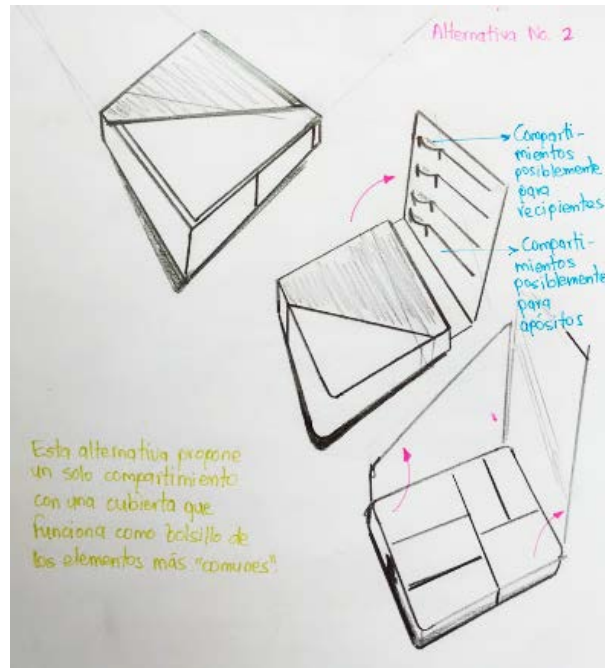 Alternativa No. 2
Comparti-
mientos
posiblemente
para
recipientes
Comparti-
mientos
posiblemente
para
apósitos
Esta alternativa propone
un solo compartimiento
con una cubierta que
funciona como bolsillo de
los elementos más "comunes".